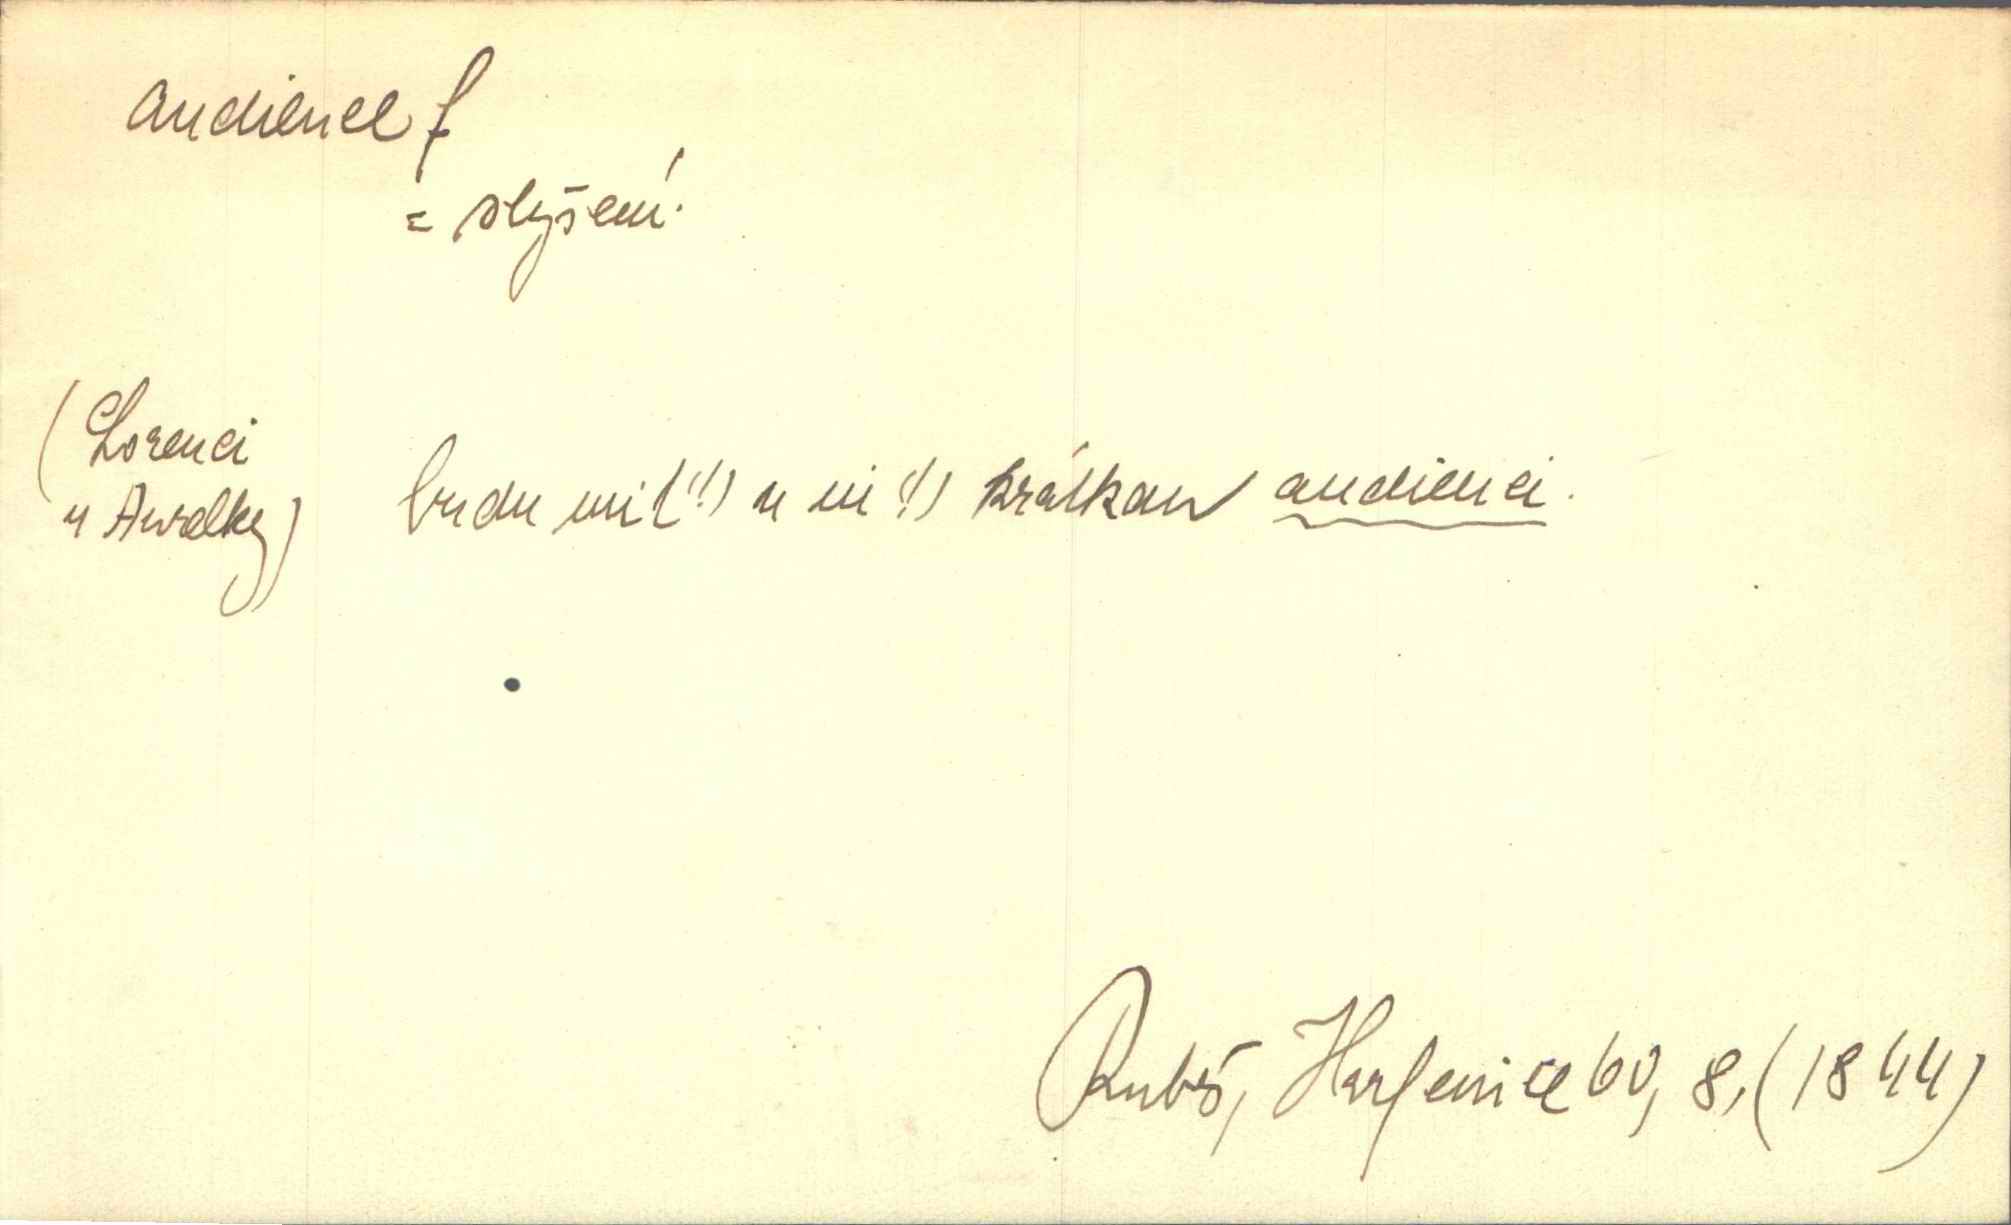 audience f
= slyšení.
(Lorenci
u Amalky) budu mit(!) u ni(!) krátkau audienci.
Rubš, Harfenice 60, 8, (1844)